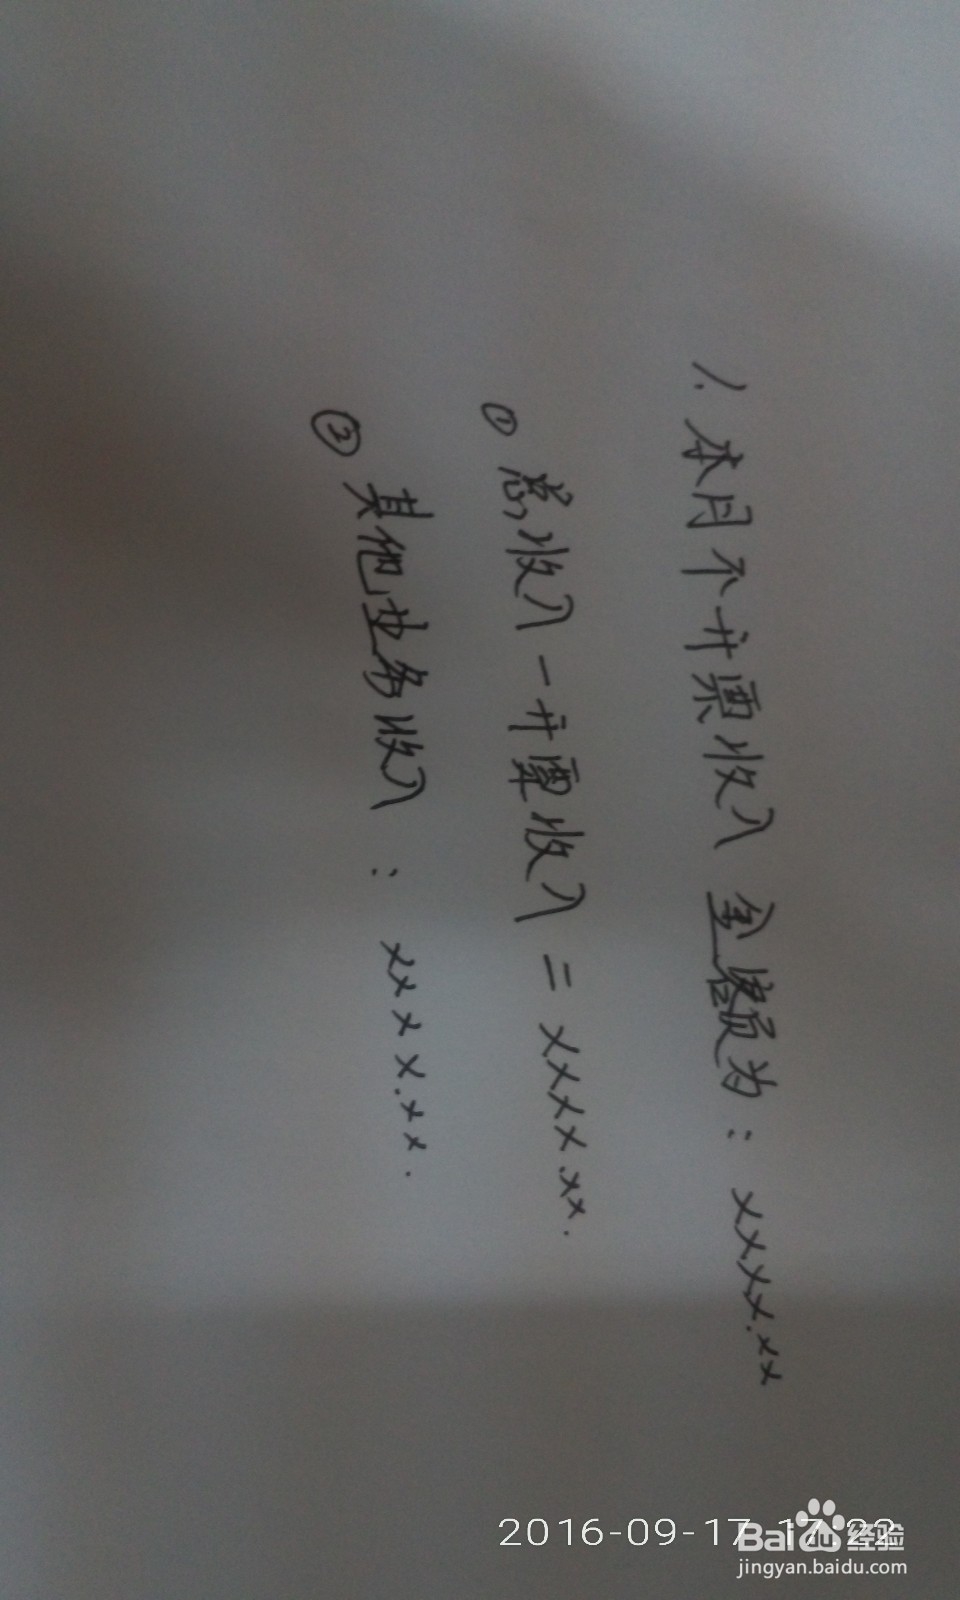 1. 本月不开票收入金额为：xxxx.xx
① 总收入－开票收入＝xxxx.xx.
② 其他业务收入：xxxx.xx.
2016-09-17 17:22
Bai 经验
jingyan.baidu.com